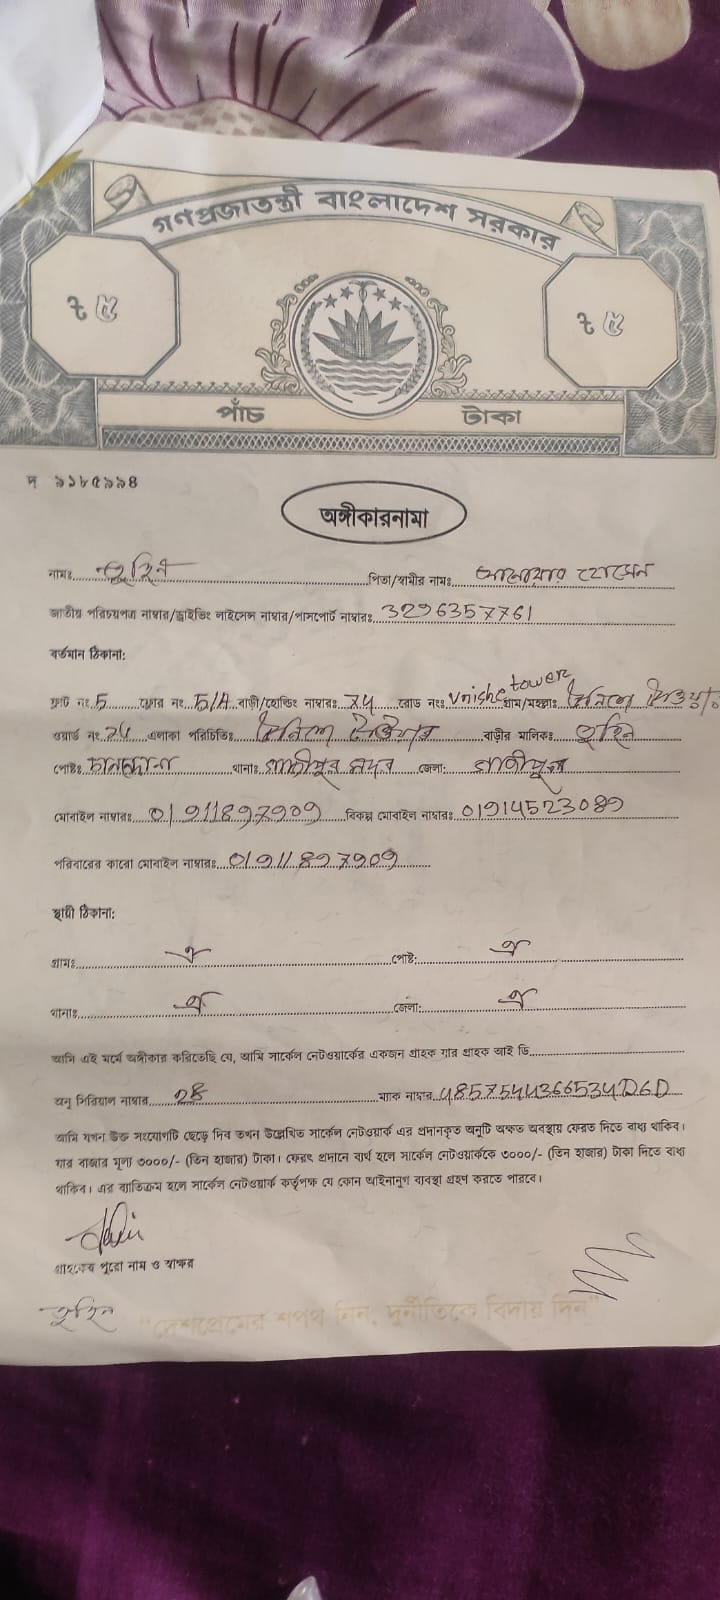 গণপ্রজাতন্ত্রী বাংলাদেশ সরকার
৳ ৫ ৳ ৫
পাঁচ টাকা
দ ৯১৮৫৯৯৪
অঙ্গীকারনামা
নামঃ তুহিন পিতা/স্বামীর নামঃ আনোয়ার হোসেন
জাতীয় পরিচয়পত্র নাম্বার/ড্রাইভিং লাইসেন্স নাম্বার/পাসপোর্ট নাম্বারঃ 3296357761
বর্তমান ঠিকানা:
ফ্লাট নং 5 ফ্লোর নং 5/A বাড়ী/হোল্ডিং নাম্বারঃ রোড নংঃ tower গ্রাম/মহল্লাঃ
ওয়ার্ড নং এলাকা পরিচিতিঃ বাড়ীর মালিকঃ তুহিন
পোষ্টঃ চান্দনা থানাঃ গাজীপুর সদর জেলা: গাজীপুর
মোবাইল নাম্বারঃ 01911897909 বিকল্প মোবাইল নাম্বারঃ 01914523089
পরিবারের কারো মোবাইল নাম্বারঃ 01911897909
স্থায়ী ঠিকানা:
গ্রামঃ ঐ পোষ্ট: ঐ
থানাঃ ঐ জেলা: ঐ
আমি এই মর্মে অঙ্গীকার করিতেছি যে, আমি সার্কেল নেটওয়ার্কের একজন গ্রাহক যার গ্রাহক আই ডি
অনু সিরিয়াল নাম্বার 28 ম্যাক নাম্বার
আমি যখন উক্ত সংযোগটি ছেড়ে দিব তখন উল্লেখিত সার্কেল নেটওয়ার্ক এর প্রদানকৃত অনুটি অক্ষত অবস্থায় ফেরত দিতে বাধ্য থাকিব।
যার বাজার মূল্য ৩০০০/- (তিন হাজার) টাকা। ফেরৎ প্রদানে ব্যর্থ হলে সার্কেল নেটওয়ার্ককে ৩০০০/- (তিন হাজার) টাকা দিতে বাধ্য
থাকিব। এর ব্যতিক্রম হলে সার্কেল নেটওয়ার্ক কর্তৃপক্ষ যে কোন আইনানুগ ব্যবস্থা গ্রহণ করতে পারবে।
গ্রাহকের পুরো নাম ও স্বাক্ষর
তুহিন
"দেশপ্রেমের শপথ নিন, দুর্নীতিকে বিদায় দিন"